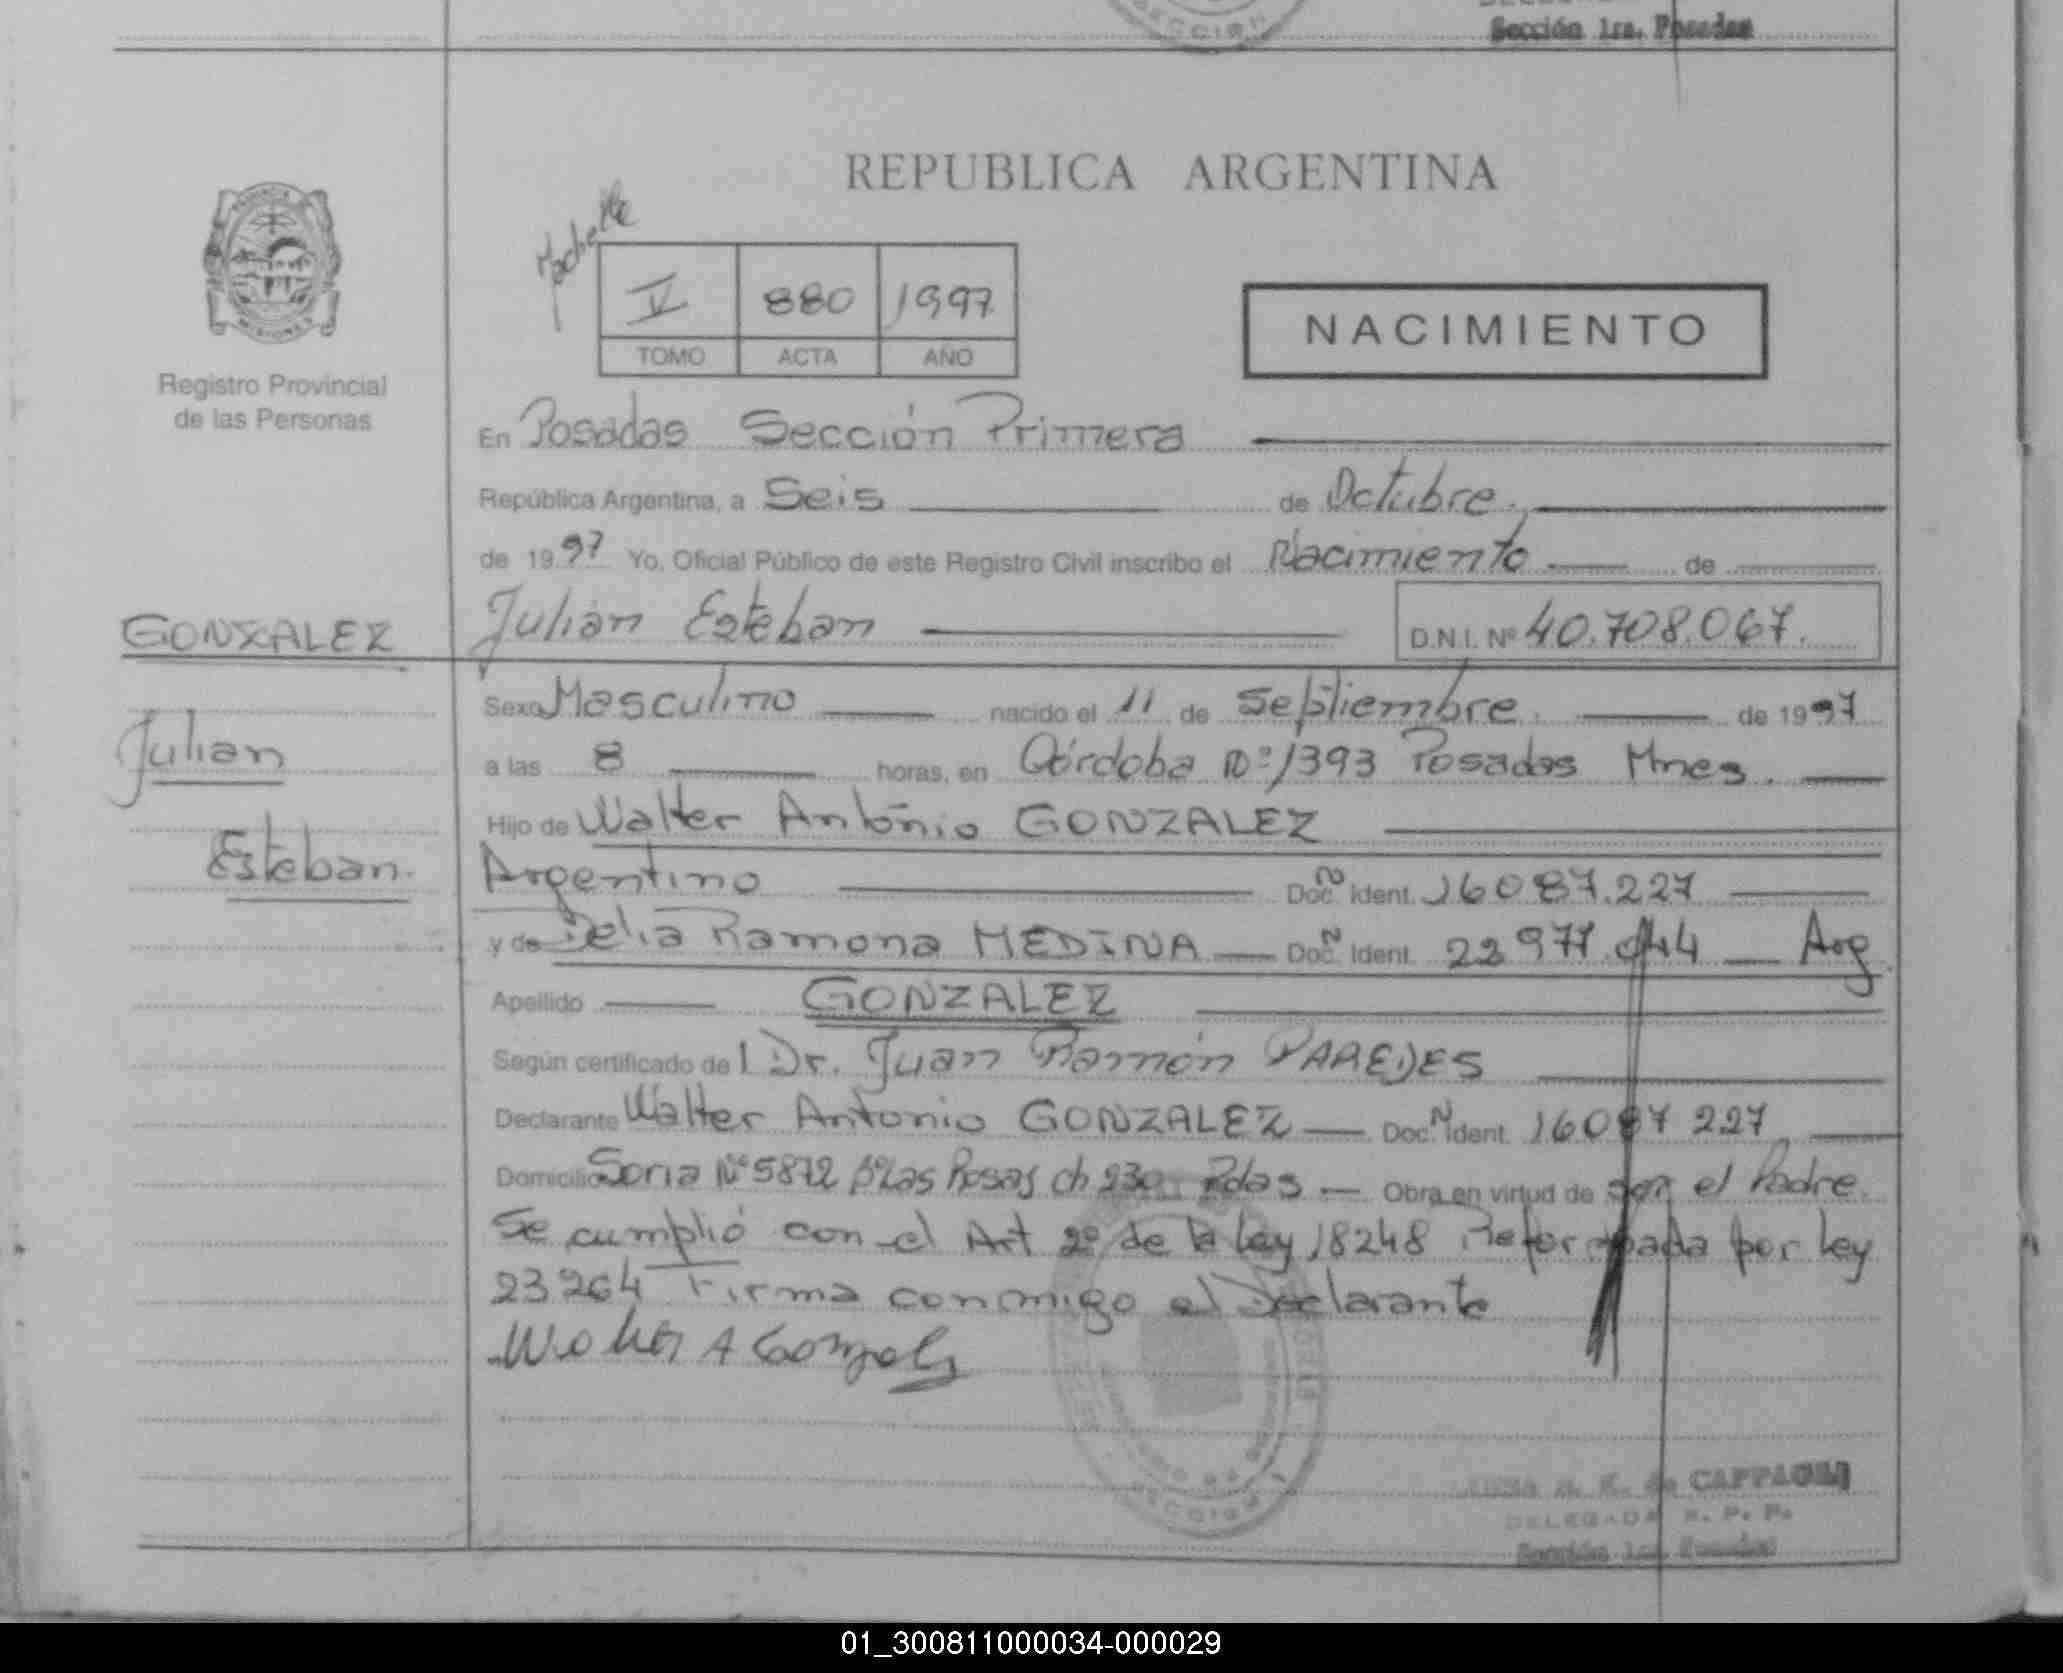 Sección 1ra. Posadas
REPUBLICA ARGENTINA
PROVINCIA
MISIONES
Registro Provincial
de las Personas
V 880 1997
TOMO ACTA AÑO
NACIMIENTO
En Posadas Sección Primera
República Argentina, a Seis de Octubre.
de 1997 Yo, Oficial Público de este Registro Civil inscribo el Nacimiento de
GONZALEZ
Julian
Esteban.
Julián Esteban D.N.I. Nº 40.708.067.
Sexo Masculino nacido el 11 de Septiembre. de 1997
a las 8 horas, en Córdoba Nº 1393 Posadas Mnes.
Hijo de Walter Antonio GONZALEZ
Argentino Doc. N Ident. 16087.227
y de Delia Ramona MEDINA Doc. N Ident. 22977.044 Arg.
Apellido GONZALEZ
Según certificado del Dr. Juan Ramón PAREDES
Declarante Walter Antonio GONZALEZ Doc. N Ident. 16087 227
Domicilio Soria Nº 5872 Bº Las Rosas ch 230 Pdas Obra en virtud de ser el Padre.
Se cumplió con el Art 2º de la Ley 18248 Reformada por ley
23264 Firma conmigo el Declarante
Walter A Gonzalez
de CAPPAGLI
DELEGADA R. P. P.
Sección 1ra. Posadas
01_300811000034-000029